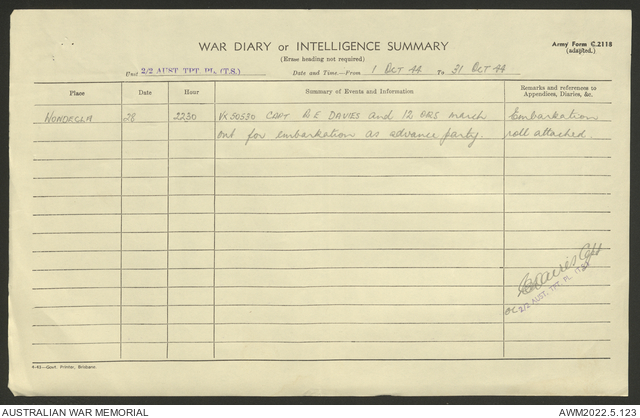 WAR DIARY or INTELLIGENCE SUMMARY
Army Form C.2118
(adapted.)
(Erase heading not required)
Unit 2/2 AUST. TPT. PL. (T.S.) Date and Time.—From 1 OCT 44 To 31 OCT 44
Place Date Hour Summary of Events and Information Remarks and references to
Appendices, Diaries, &c.
WONDECLA 28 2230 VX50530 CAPT A E DAVIES and 12 ORS march Embarkation
out for embarkation as advance party. roll attached.
Davies Capt
OC 2/2 AUST. TPT. PL. (T.S.)
9-43—Govt. Printer, Brisbane
AUSTRALIAN WAR MEMORIAL AWM2022.5.123